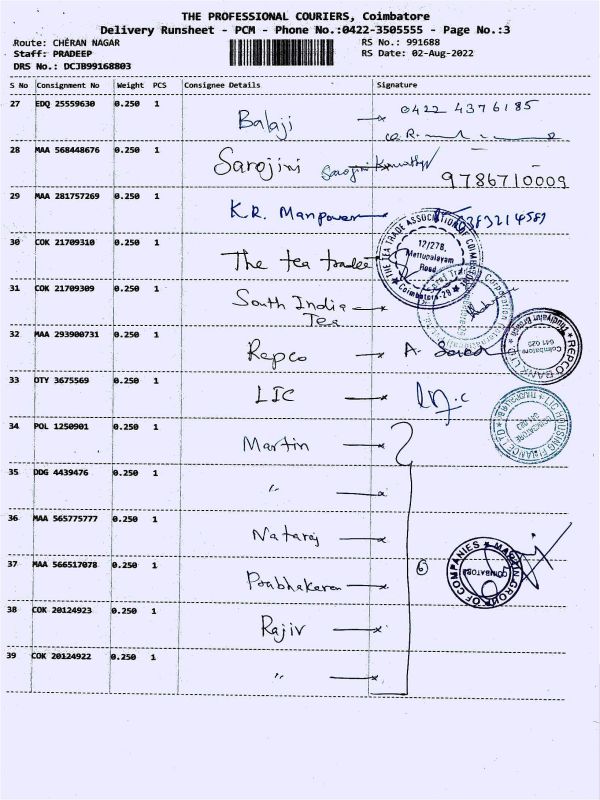 THE PROFESSIONAL COURIERS, Coimbatore
Delivery Runsheet - PCM - Phone No.:0422-3505555 - Page No.:3
Route: CHERAN NAGAR
RS No.: 991688
Staff: PRADEEP
RS Date: 02-Aug-2022
DRS No.: DCJB99168803
S No Consignment No Weight PCS Consignee Details Signature
27 EDQ 25559630 0.250 1 Balaji 0422 4376185
28 MAA 568448676 0.250 1 Sarojini 9786710009
29 MAA 281757269 0.250 1 K.R. Manpower
30 COK 21709310 0.250 1 The tea trade
THE TEA TRADE ASSOCIATION OF COIMBATORE
12/278,
Mettupalayam
Road
Coimbatore-29
31 COK 21709309 0.250 1 South India
Tea
32 MAA 293900731 0.250 1 Repco
REPCO BANK LTD
Coimbatore
641 029
33 OTY 3675569 0.250 1 LIC
LIC HOUSING FINANCE LTD
34 POL 1250901 0.250 1 Martin
35 DDG 4439476 0.250 1 "
36 MAA 565775777 0.250 1 Nataraj
37 MAA 566517078 0.250 1 Prabhakaran 6
MARTIN GROUP OF COMPANIES
COIMBATORE
38 COK 20124923 0.250 1 Rajiv
39 COK 20124922 0.250 1 "